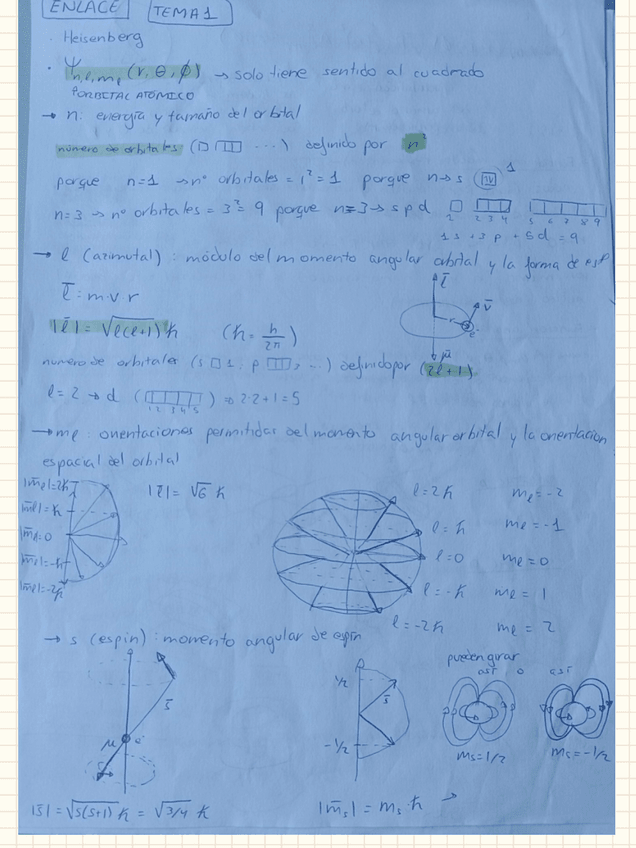 ENLACE TEMA 1
· Heisenberg
· Ψn,l,ml (r, θ, ϕ) → solo tiene sentido al cuadrado
ORBITAL ATÓMICO
→ n: energía y tamaño del orbital
número de orbitales (□ □□□ ...) definido por n²
porque n=1 → nº orbitales = 1² = 1 porque n → s 1
n=3 → nº orbitales = 3² = 9 porque n=3 → s p d 1 2 3 4 5 6 7 8 9
1 s + 3 p + 5 d = 9
→ l (azimutal): módulo del momento angular orbital y la forma de esp
l̄ = m v r
|l̄| = √l(l+1) ħ (ħ = h/2π)
l̄ v̄ r e⁻ μ̄
numero de orbitales (s □ 1, p □□□, ...) definido por (2l+1)
l = 2 → d (□□□□□) ⇒ 2·2+1=5
1 2 3 4 5
→ ml: orientaciones permitidas del momento angular orbital y la orientacion
espacial del orbital
|m̄l|=2ħ |l̄| = √6 ħ l=2ħ ml = -2
|m̄l|=ħ l=ħ ml = -1
|m̄l|=0 l=0 ml = 0
|m̄l|=-ħ l=-ħ ml = 1
|m̄l|=-2ħ l=-2ħ ml = 2
→ s (espin): momento angular de espin
pueden girar
así o así
s̄ 1/2 s̄
μ e⁻ -1/2
ms=1/2 ms=-1/2
|s̄| = √s(s+1) ħ = √3/4 ħ |m̄s| = ms ħ →